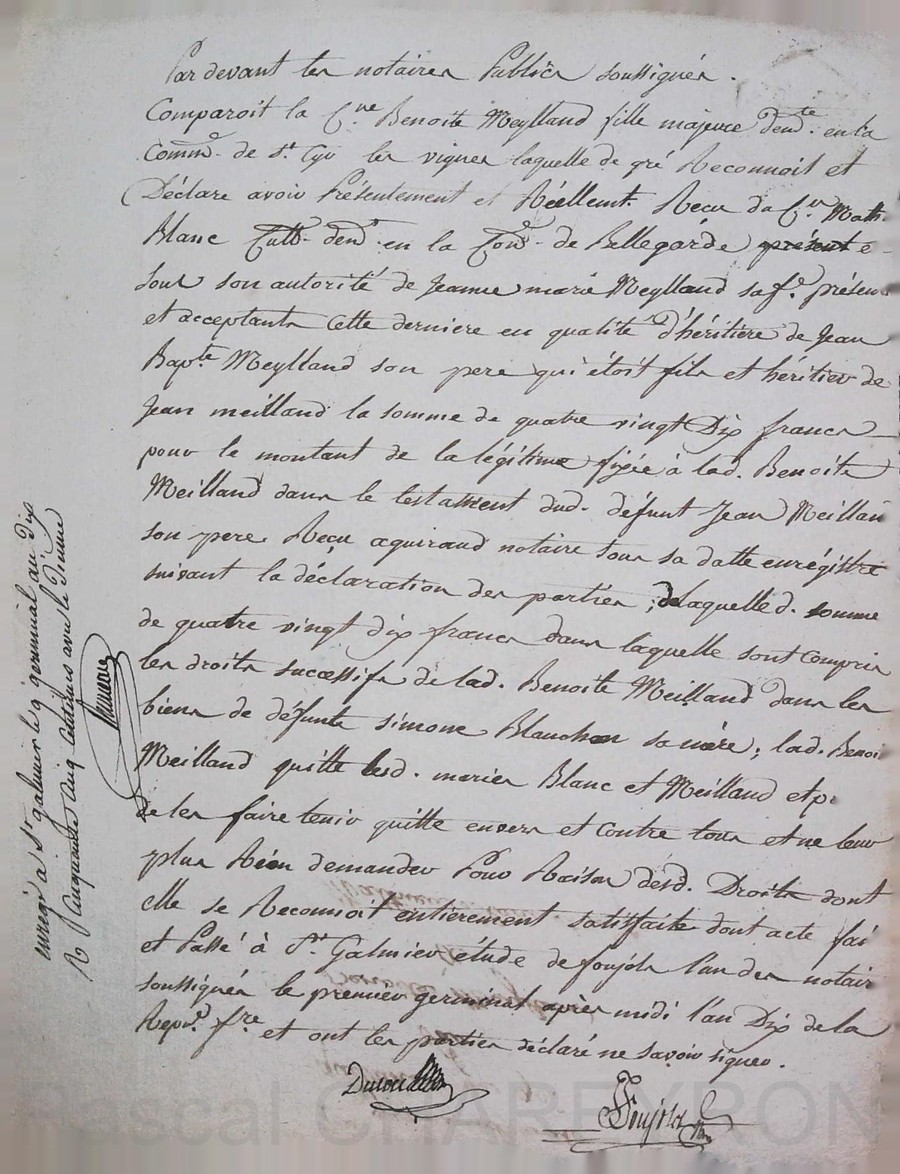 Par devant les notaires Publics soussignés.
Comparoit la C.ne Benoite Meylland fille majeure dem.te en la
Comm.e de S.t Cyr les vignes laquelle de gré Reconnoit et
Déclare avoir Présentement et Réellemt. Recu du C.en Math.
Blanc Cult.r dem.t en la Com.e de Bellegarde présent e
sous son autorité de Jeanne marie Meylland sa f.e présen
et acceptants cette derniere en qualité d'héritiere de Jean
Bap.te Meylland son pere qui étoit fils et héritier de
Jean meilland la somme de quatre vingt Dix francs
pour le montant de la légitime fixée à lad. Benoite
Meilland dans le testament dud. défunt Jean Meillan
son pere Reçu aguiraud notaire sous sa datte enrégistré
suivant la déclaration des parties ; de laquelle d. somme
de quatre vingt dix francs dans laquelle sont compris
les droits successifs de lad. Benoite Meilland dans les
biens de défunte simone Blanchon sa mère ; lad. Benoi
Meilland quitte lesd. mariés Blanc et Meilland et p.
de les faire tenir quitte envers et contre tous et ne leur
plus Rien demander Pour Raison desd. Droits dont
elle se Reconnoit entierement satisfaite dont acte fai
et Passé à S.t Galmier étude de foujols l'un des notair
soussignés le premier germinal après midi l'an Dix de la
Repu.e fr.e et ont les parties déclaré ne savoir signer.
Foujols
enrég.é à S.t galmier le 9 germinal an dix
R Cinquante Cinq Centimes avec le Dixme
Pascal CHAREYRON